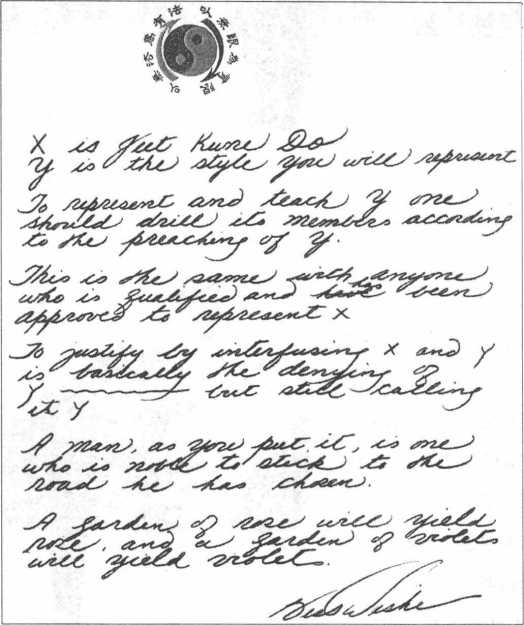 以無法為有法 以無限為有限
X is Jeet Kune Do
Y is the style you will represent
To represent and teach Y one
should drill its members according
to the preaching of Y.
This is the same with anyone
who is qualified and has been
approved to represent X
To justify by interfusing X and Y
is basically the denying of
Y ———— but still calling
it Y
A man, as you put it, is one
who is noble to stick to the
road he has chosen.
A garden of rose will yield
rose, and a garden of violets
will yield violets.
Best Wishes